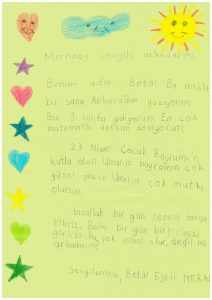 Merhaba sevgili arkadaşım
Benim adım Betül. Bu mektu-
bu sana Ankara'dan yazıyorum.
Ben 3. sınıfa gidiyorum. En çok
matematik dersini seviyorum.
23 Nisan Çocuk Bayramı'n
kutlu olsun. Umarım bayramın çok
güzel geçer. Umarım çok mutlu
olursun.
İnşallah bir gün seninle tanışa-
biliriz. Belki bir gün birbirimizi
görürüz. Bu çok güzel olur, değil mi
arkadaşım?
Sevgilerimle, Betül Eylül